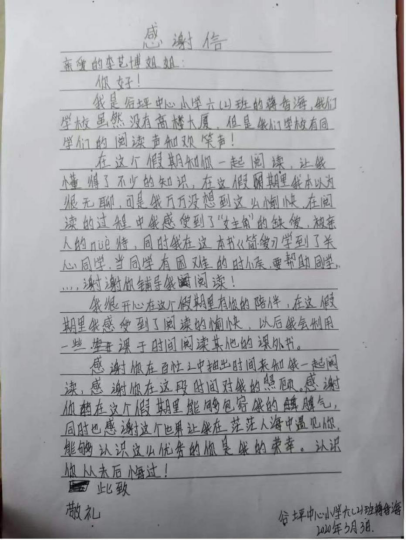 感谢信
亲爱的李艺博姐姐：
你好！
我是台坪中心小学六(2)班的韩春海，我们
学校虽然没有高楼大厦，但是我们学校有同
学们的阅读声和欢笑声！
在这个假期和你一起阅读，让我
懂得了不少的知识，在这假期里我本以为
很无聊，可是我万万没想到这么愉快，在阅
读的过程中我感受到了"女主角"的缺使，被亲
人的nuè待，同时我在这本书《简爱》学到了关
心同学，当同学有困难的时候，要帮助同学。
……谢谢你辅导我阅读！
我很开心在这个假期里有你的陪伴，在这假
期里我感受到了阅读的愉快，以后我会利用
一些课于时间阅读其他的课外书。
感谢你在百忙之中抽出时间来和我一起阅
读，感谢你在这段时间对我的照顾，感谢
你在这个假期里能够包容我的脾气，
同时也感谢这个世界让我在茫茫人海中遇见你，
能够认识这么优秀的你是我的荣幸。认识
你从未后悔过！
此致
敬礼
台坪中心小学六(2)班韩春海
2020年3月3日